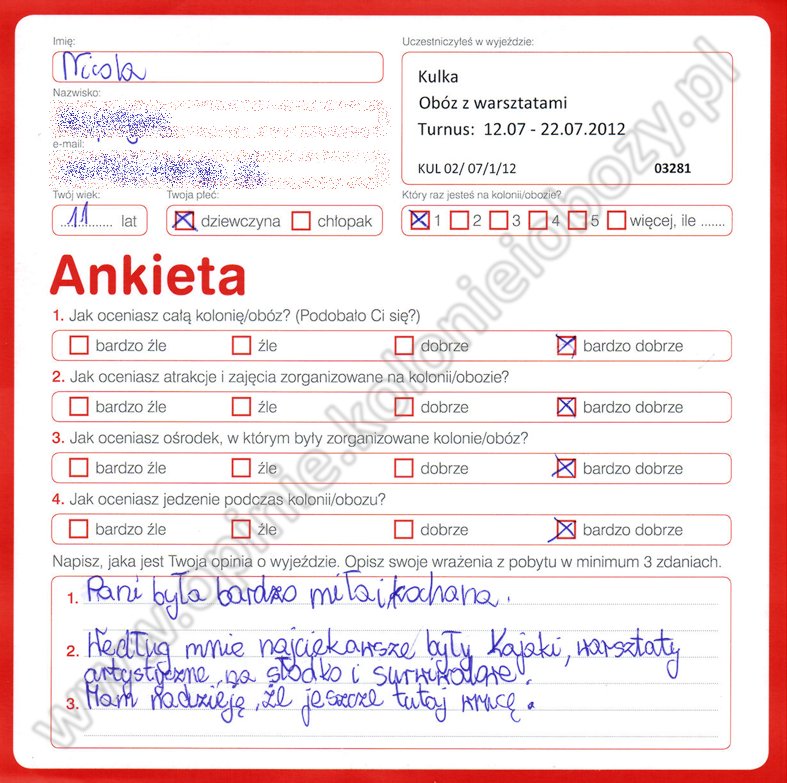 Imię:
Nicola
Uczestniczyłeś w wyjeździe:
Kulka
Obóz z warsztatami
Turnus: 12.07 - 22.07.2012
KUL 02/ 07/1/12 03281
Nazwisko:
e-mail:
Twój wiek:
11 lat
Twoja płeć:
dziewczyna chłopak
Który raz jesteś na kolonii/obozie?
1 2 3 4 5 więcej, ile .......
Ankieta
1. Jak oceniasz całą kolonię/obóz? (Podobało Ci się?)
bardzo źle źle dobrze bardzo dobrze
2. Jak oceniasz atrakcje i zajęcia zorganizowane na kolonii/obozie?
bardzo źle źle dobrze bardzo dobrze
3. Jak oceniasz ośrodek, w którym były zorganizowane kolonie/obóz?
bardzo źle źle dobrze bardzo dobrze
4. Jak oceniasz jedzenie podczas kolonii/obozu?
bardzo źle źle dobrze bardzo dobrze
Napisz, jaka jest Twoja opinia o wyjeździe. Opisz swoje wrażenia z pobytu w minimum 3 zdaniach.
1. Pani była bardzo miła i kochana.
2. Według mnie najciekawsze były Kajaki, warsztaty
artystyczne, na słodko i surwiwalowe.
3. Mam nadzieję, że jeszcze tutaj wrócę.
www.opinie.kolonieiobozy.pl